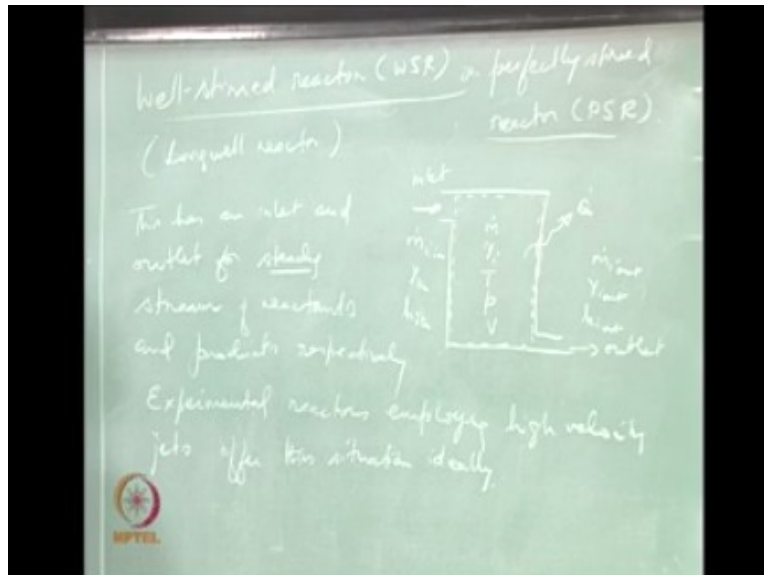 Well-stirred reactor (WSR) or perfectly stirred
reactor (PSR).
(Longwell reactor)
inlet
This has an inlet and
outlet for steady
stream of reactants
and products respectively
ṁ
Yi
T
P
V
Q̇
outlet
Experimental reactors employing high velocity
jets offer this situation ideally.
NPTEL